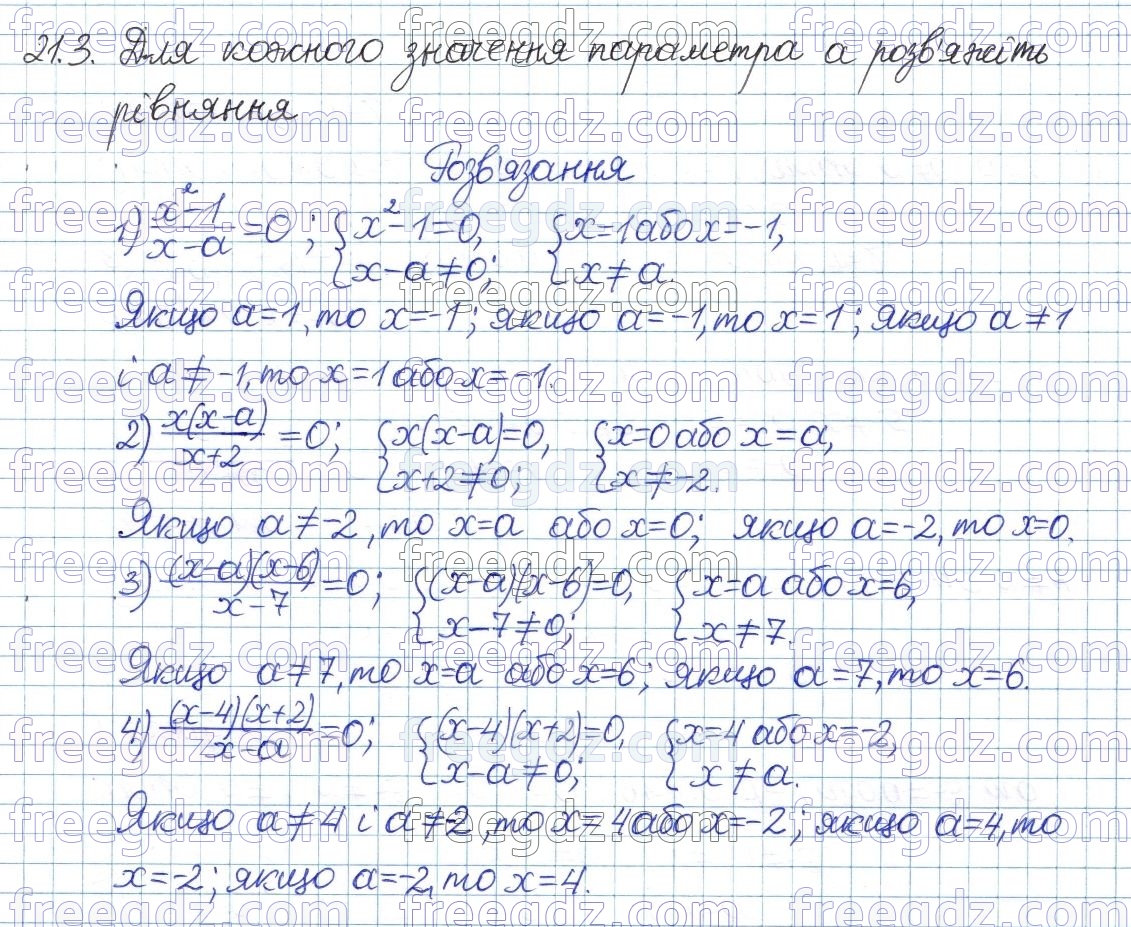 21.3. Для кожного значення параметра а розв'яжіть
рівняння
Розв'язання
1) (x²-1)/(x-a) = 0; { x²-1=0, x-a≠0; { x=1 або x=-1, x≠a.
Якщо a=1, то x=-1; якщо a=-1, то x=1; якщо a≠1
і a≠-1, то x=1 або x=-1.
2) x(x-a)/(x+2) = 0; { x(x-a)=0, x+2≠0; { x=0 або x=a, x≠-2.
Якщо a≠-2, то x=a або x=0; якщо a=-2, то x=0.
3) (x-a)(x-6)/(x-7) = 0; { (x-a)(x-6)=0, x-7≠0; { x=a або x=6, x≠7.
Якщо a≠7, то x=a або x=6; якщо a=7, то x=6.
4) (x-4)(x+2)/(x-a) = 0; { (x-4)(x+2)=0, x-a≠0; { x=4 або x=-2, x≠a.
Якщо a≠4 і a≠-2, то x=4 або x=-2; якщо a=4, то
x=-2; якщо a=-2, то x=4.
freegdz.com